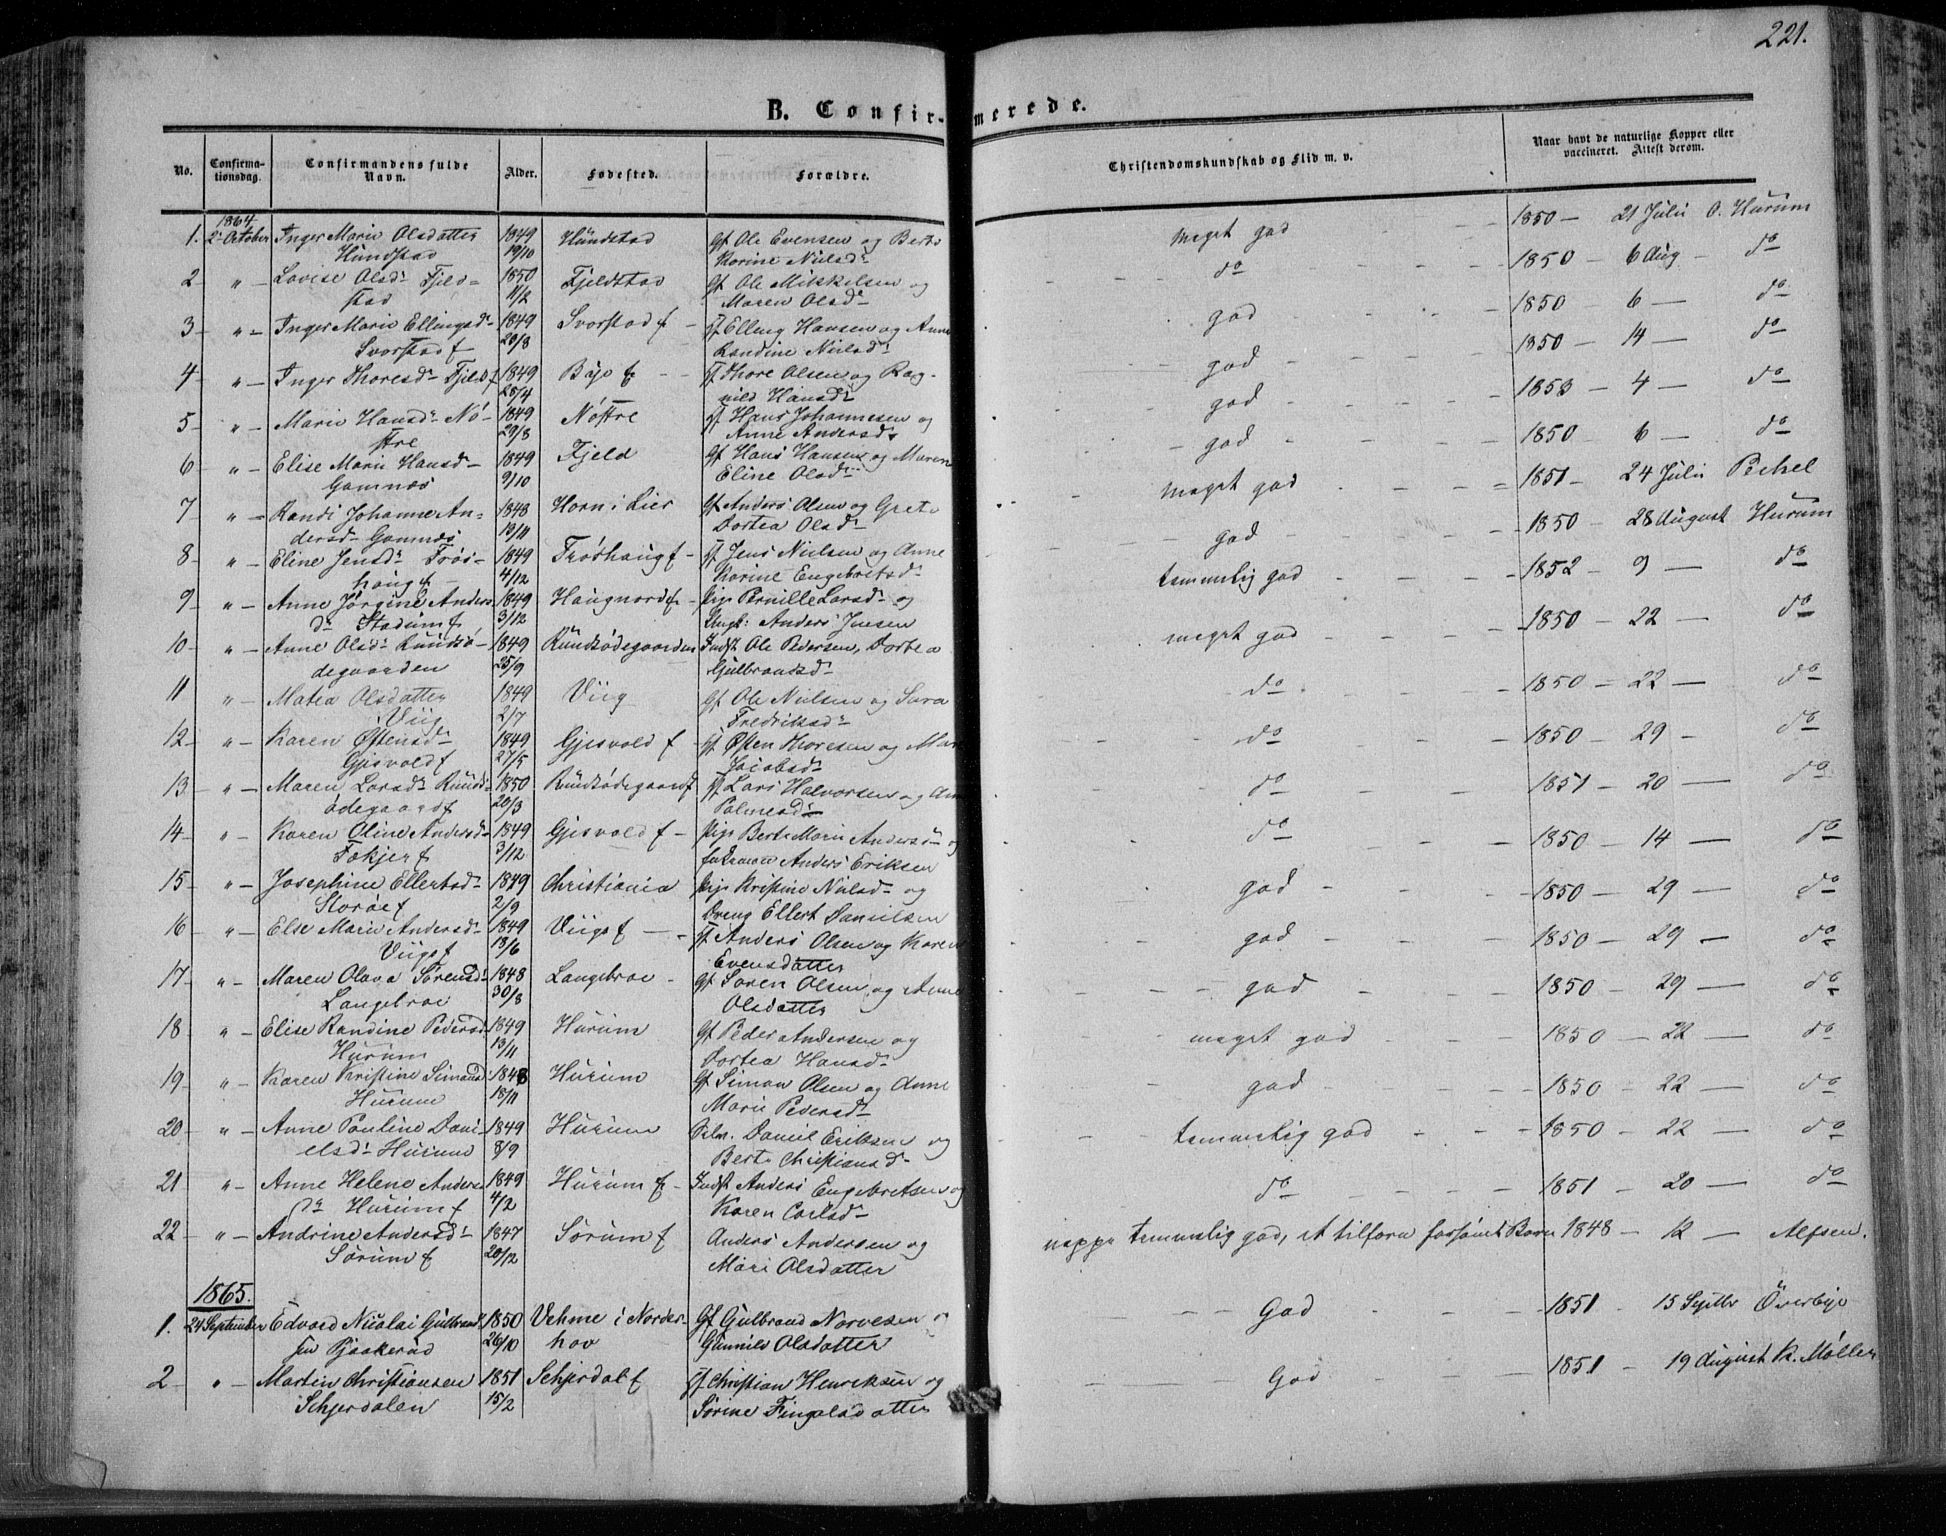 221.
B. Confirmerede.
No.
Confirmationsdag.
Confirmandens fulde Navn.
Alder.
Fødested.
Forældre.
Christendomskundskab og Flid m. v.
Naar havt de naturlige Kopper eller
vaccineret. Attest derom.
1864
1. 2 October Inger Marie Olsdatter 1849 Hundstad Gf Ole Evensen og Berte meget god 1850 — 21 Juli O. Hurum
Hundstad 19/10 Karine Nielsd
2 " Lovise Olsd Fjeld- 1850 Fjeldstad Gf Ole Mikkelsen og do 1850 — 6 Aug — do
stad 11/2 Maren Olsd
3 " Inger Marie Ellingsd 1849 Svorstad f Hf Elling Hansen og Anne god 1850 — 6 — do
Svorstad f 20/8 Randine Nielsd
4 " Inger Thoresd Fjeld f 1849 Bye f Hf Thore Olsen og Rag- god 1850 — 14 — do
28/4 nild Hansd
5 " Marie Hansd Nø- 1849 Nøstre Hf Hans Johannesen og god 1853 — 4 — do
stre 29/8 Anne Andersd
6 " Elise Marie Hansd 1849 Fjeld Gf Hans Hansen og Maren god 1850 — 6 — do
Gomnæs 9/10 Eline Olsd
7 " Randi Johanne An- 1848 Horn i Lier Gf Anders Olsen og Grete meget god 1851 — 24 Juli Pihel
dersd Gomnæs 19/11 Dortea Olsd
8 " Eline Jensd Frøs- 1849 Frøshaug f Hf Jens Nielsen og Anne god 1850 — 28 August Hurum
houg f 4/12 Karine Engebretsd
9 " Anne Jørgine Anders 1849 Haugnord f Pige Pernille Larsd og temmelig god 1852 — 9 — do
d Stadum f 3/12 Ungk: Anders Jensen
10 " Anne Olsd Kundsø- 1849 Kundsødegaarden Indst Ole Pedersen, Dortea meget god 1850 — 22 — do
degaarden 25/9 Gulbrandsd
11 " Matea Olsdatter 1849 Viig Gf Ole Nielsen og Sara do 1850 — 22 — do
Viig 2/7 Fredriksd
12 " Karen Østensd 1849 Gjesvold f Hf Østen Thoresen og Mar do 1850 — 29 — do
Gjesvold f 27/5 Jacobsd
13 " Maren Larsd Kunds 1850 Kundsødegaard f Hf Lars Halvorsen og An do 1851 — 20 — do
ødegaard f 20/3 Palmesd
14 " Karen Oline Andersd 1849 Gjesvold f Pige Berte Marie Andersd og do 1850 — 14 — do
Tokjer f 3/12 Anders Eriksen
15 " Josephine Ellertsd 1849 Christiania Pige Kristine Nielsd og god 1850 — 29 — do
Storøe f 2/9 Dreng Ellert Danielsen
16 " Else Marie Andersd 1849 Viigs f Hf Anders Olsen og Karen god 1850 — 29 — do
Viigs f 13/6 Evensdatter
17 " Maren Olava Sørensd 1848 Langebroe Gf Soren Olsen og Anne god 1850 — 29 — do
Langebroe 30/8 Olsdatter
18 " Elise Randine Pedersd 1849 Hurum Gf Peder Andersen og meget god 1850 — 22 — do
Hurum 13/11 Dortea Hansd
19 " Karen Kristine Simonsd 1848 Hurum Gf Simon Olsen og Anne god 1850 — 22 — do
Hurum 18/11 Marie Pedersd
20 " Anne Pauline Dani- 1849 Hurum Daniel Eriksen og temmelig god 1850 — 22 — do
elsd Hurum 8/9 Berte Christiansd
21 " Anne Helene Anders 1849 Hurum f Indst Anders Engebretsen og do 1851 — 20 — do
d Hurum f 4/2 Karen Carlsd
22 " Andrine Andersd 1847 Sørum f Anders Andersen og neppe temmelig god, et tilforn forsømt Barn 1848 — Alfsen.
Sørum f 20/12 Mari Olsdatter
1865.
1. 24 September Edvard Nicolai Gulbrand 1850 Vehme i Norder- Gf Gulbrand Norvesen og God 1851 — 15 Septbr Överbye
sen Bjaakerud 26/10 hov Gunnild Olsdatter
2 " Martin Christiansen 1851 Schjerdal f Hf Christian Henriksen og God 1851 — 19 August K. Møller
Schjerdalen 15/2 Sørine Fingalsdatter